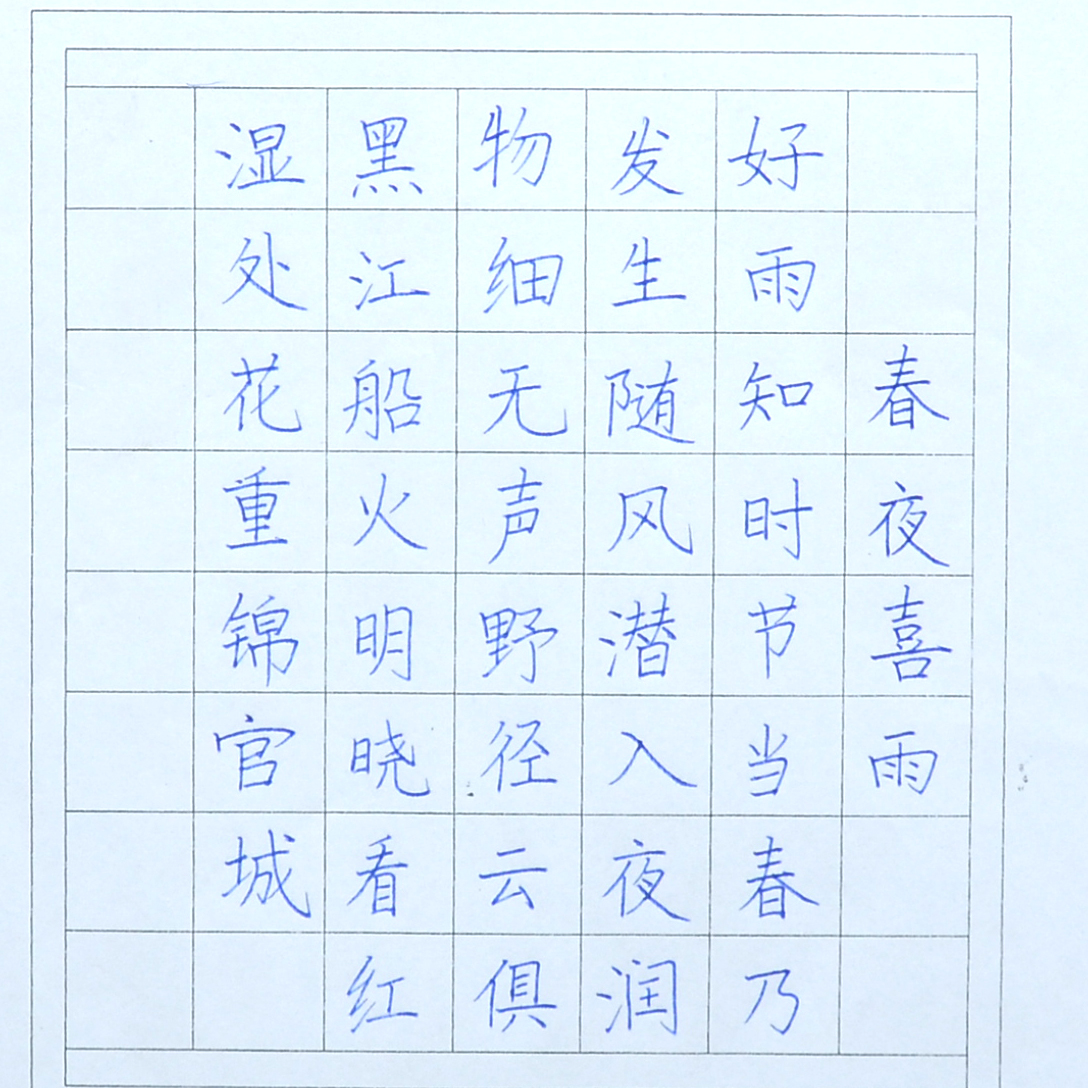 春夜喜雨
好雨知时节当春乃
发生随风潜入夜润
物细无声野径云俱
黑江船火明晓看红
湿处花重锦官城